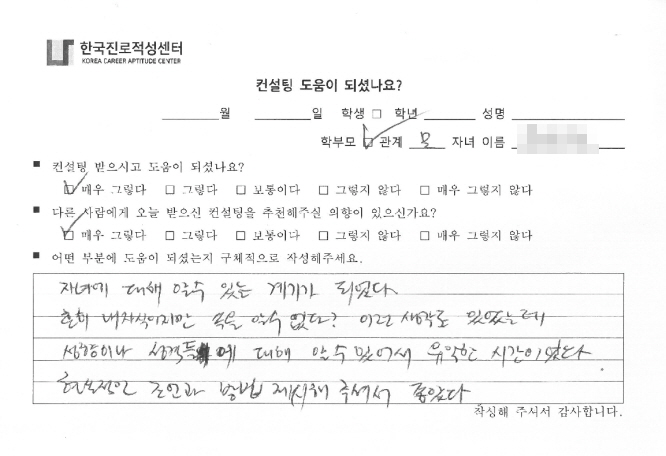 한국진로적성센터
KOREA CAREER APTITUDE CENTER
컨설팅 도움이 되셨나요?
월 일 학생 □ 학년 성명
학부모 ☑ 관계 모 자녀 이름
■ 컨설팅 받으시고 도움이 되셨나요?
☑ 매우 그렇다 □ 그렇다 □ 보통이다 □ 그렇지 않다 □ 매우 그렇지 않다
■ 다른 사람에게 오늘 받으신 컨설팅을 추천해주실 의향이 있으신가요?
☑ 매우 그렇다 □ 그렇다 □ 보통이다 □ 그렇지 않다 □ 매우 그렇지 않다
■ 어떤 부분에 도움이 되셨는지 구체적으로 작성해주세요.
자녀에 대해 알수 있는 계기가 되었다
흔히 내자식이지만 속을 알수 없다? 이런 생각도 있었는데
성향이나 성격들에 대해 알수 있어서 유익한 시간이었다
현실적인 조언과 방법 제시해 주셔서 좋았다
작성해 주셔서 감사합니다.